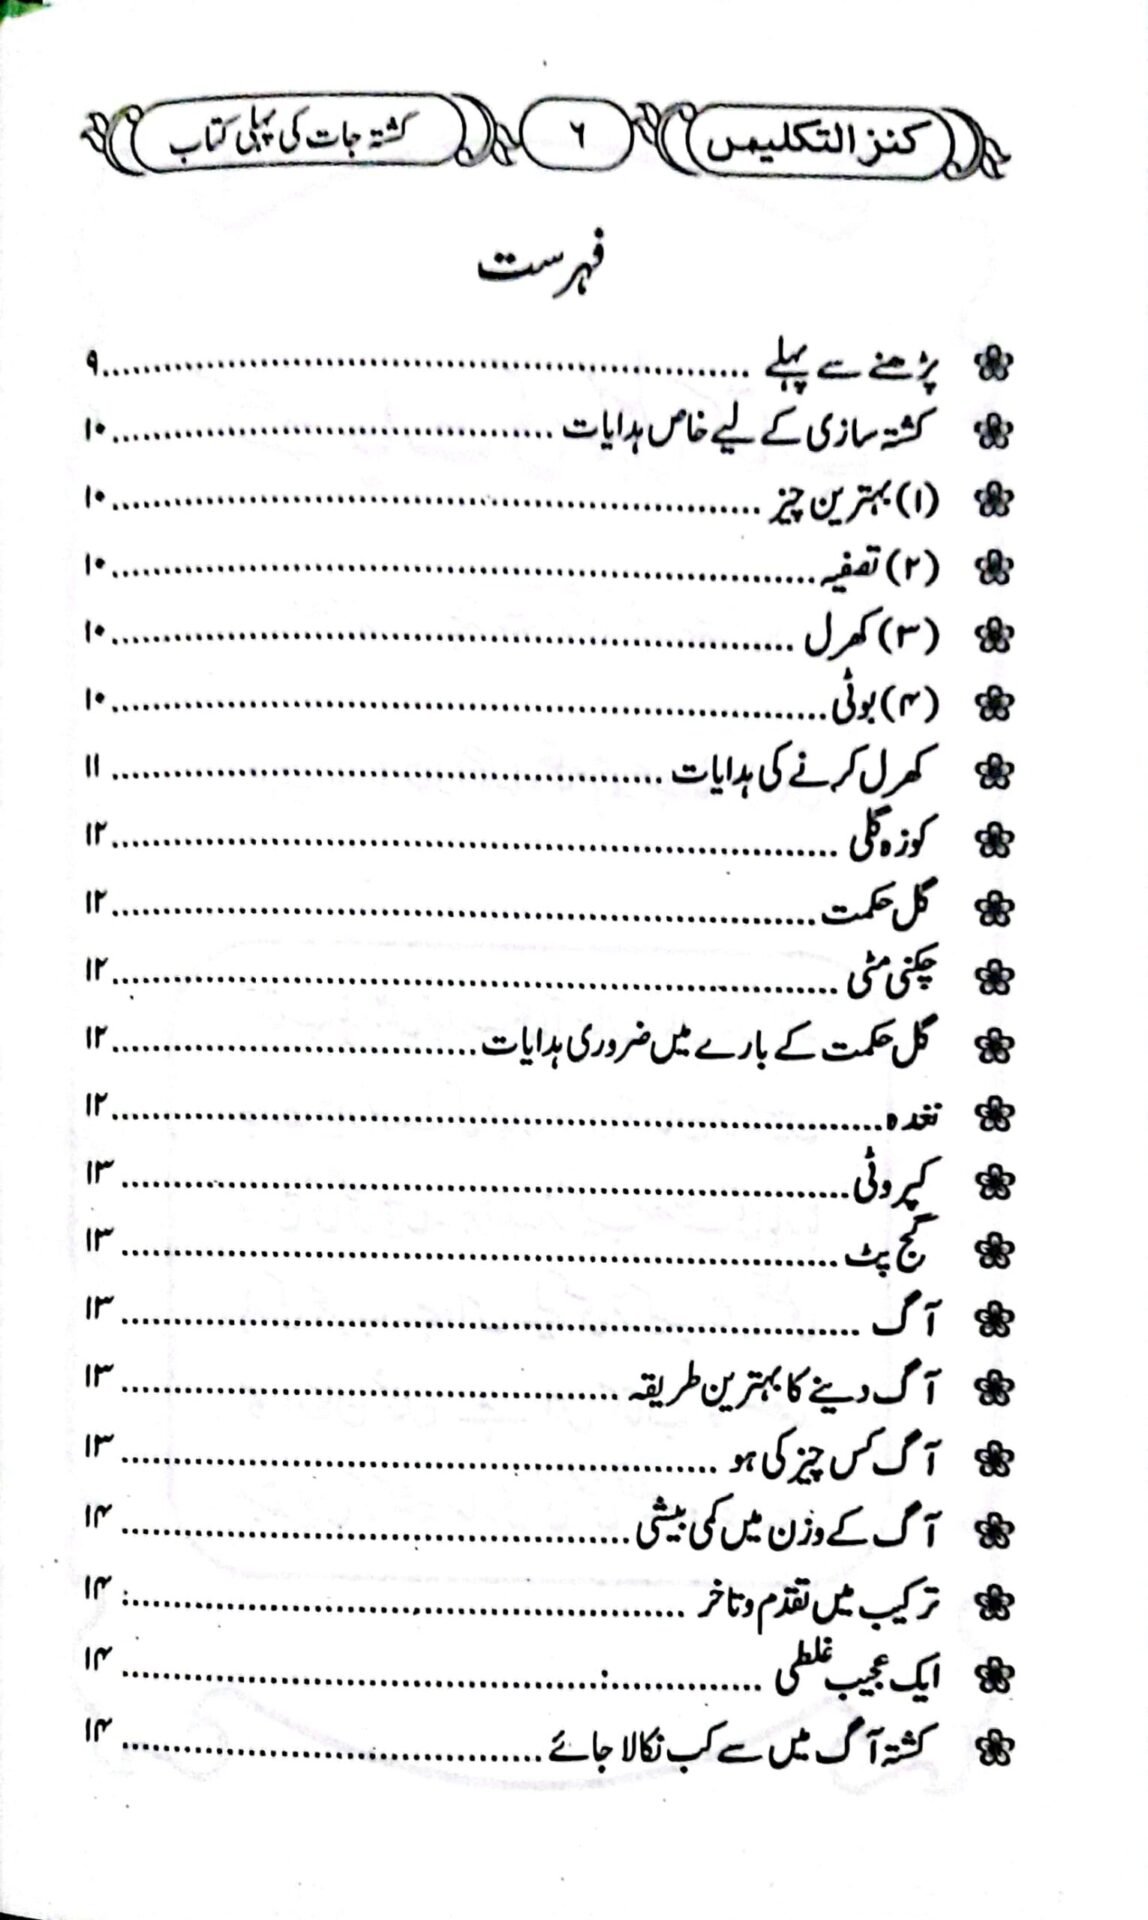 کنز التکلیس ۶ کشتہ جات کی پہلی کتاب
فہرست
پڑھنے سے پہلے ........ ۹
کشتہ سازی کے لیے خاص ہدایات ........ ۱۰
(۱) بہترین چیز ........ ۱۰
(۲) تصفیہ ........ ۱۰
(۳) کھرل ........ ۱۰
(۴) بوٹی ........ ۱۰
کھرل کرنے کی ہدایات ........ ۱۱
کوزہ گلی ........ ۱۲
گل حکمت ........ ۱۲
چکنی مٹی ........ ۱۲
گل حکمت کے بارے میں ضروری ہدایات ........ ۱۲
نغدہ ........ ۱۲
کپروٹی ........ ۱۳
گج پٹ ........ ۱۳
آگ ........ ۱۳
آگ دینے کا بہترین طریقہ ........ ۱۳
آگ کس چیز کی ہو ........ ۱۳
آگ کے وزن میں کمی بیشی ........ ۱۴
ترکیب میں تقدم و تاخر ........ ۱۴
ایک عجیب غلطی ........ ۱۴
کشتہ آگ میں سے کب نکالا جائے ........ ۱۴